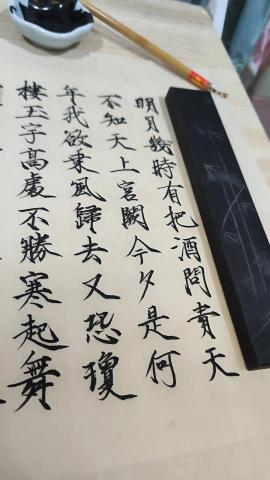 明月幾時有把酒問責天
不知天上宮闕今夕是何
年我欲乘風歸去又恐瓊
樓玉宇高處不勝寒起舞